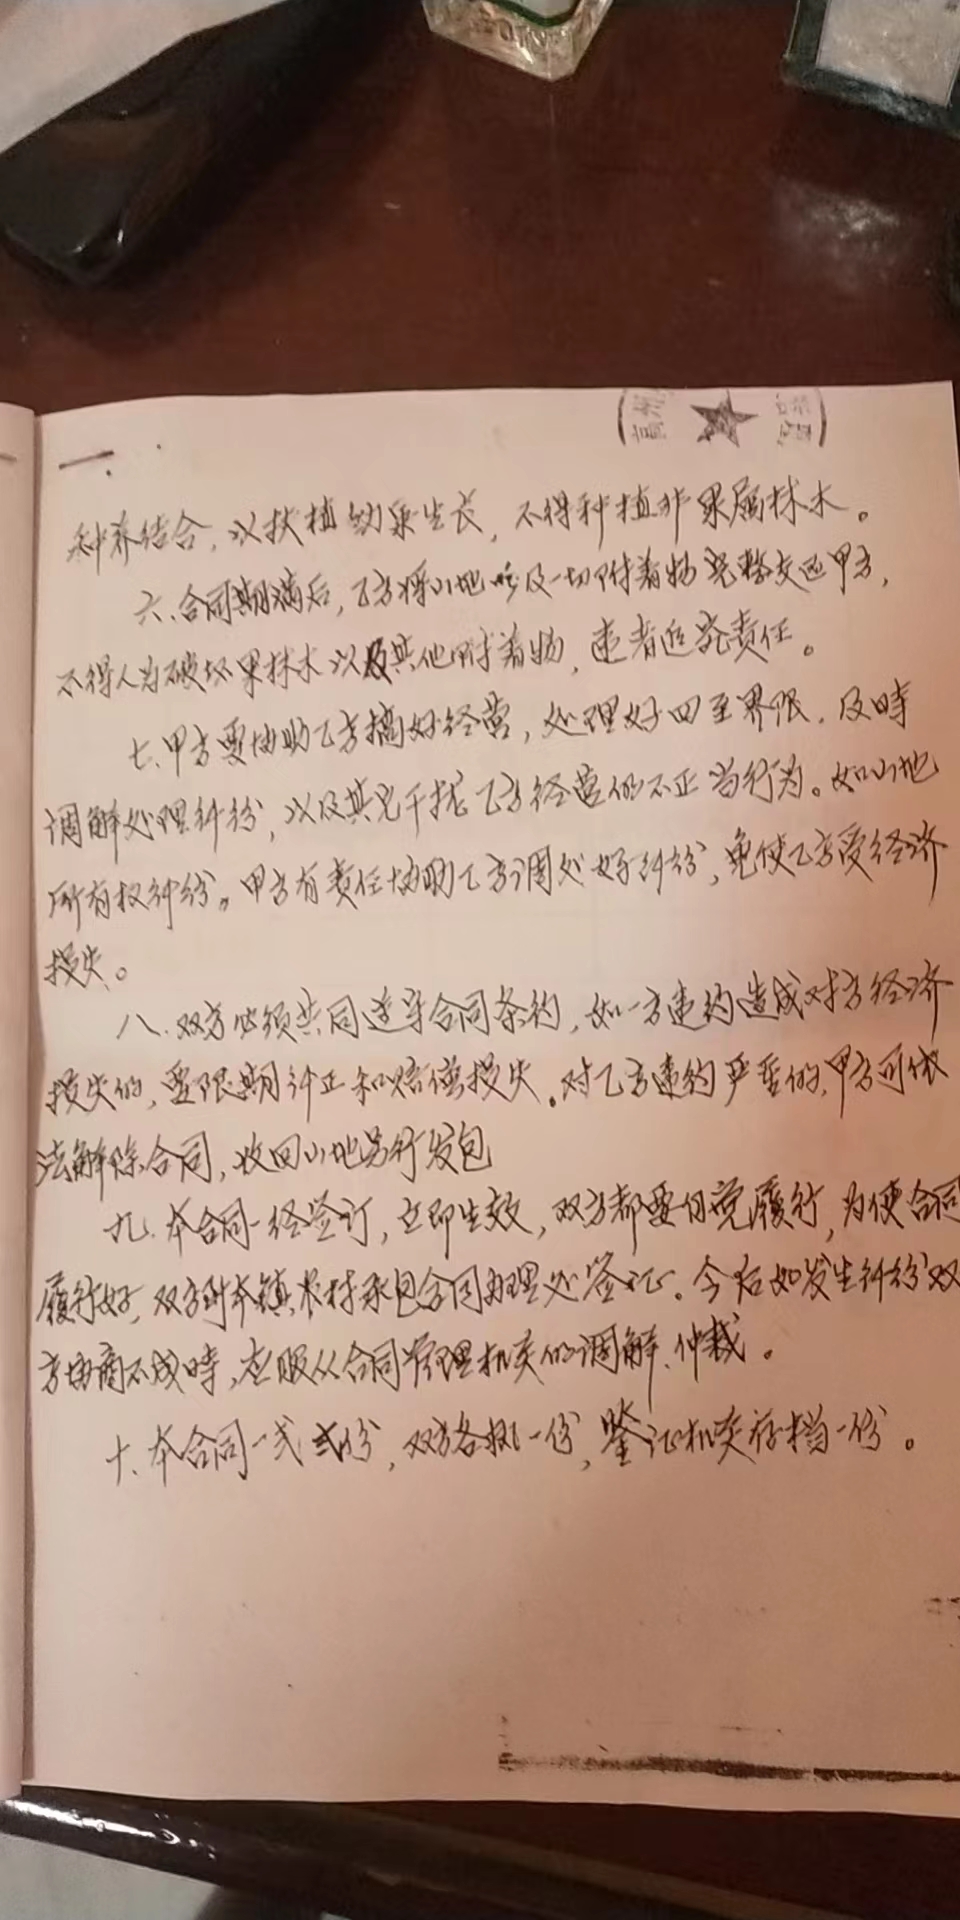 高州
种养结合，以扶植幼果生长，不得种植非果属林木。
六、合同期满后，乙方将山地及一切附着物完整交还甲方，
不得人为破坏果林木以及其他附着物，违者追究责任。
七、甲方要协助乙方搞好经营，处理好四至界限，及時
调解处理纠纷，以及其它干扰乙方经营的不正当行为。如山地
所有权纠纷。甲方有责任协助乙方调处好纠纷，免使乙方受经济
损失。
八、双方必须共同遵守合同条约，如一方违约造成对方经济
损失的，要限期计正和赔偿损失。对乙方违约严重的，甲方可依
法解除合同，收回山地另行发包
九、本合同一经签订，立即生效，双方都要自觉履行，为使合同
履行好，双方到本镇农村承包合同办理处签证。今后如发生纠纷双
方协商不成時，应服从合同管理机关的调解、仲裁。
十、本合同一式弍份，双方各执一份，鉴证机关存档一份。